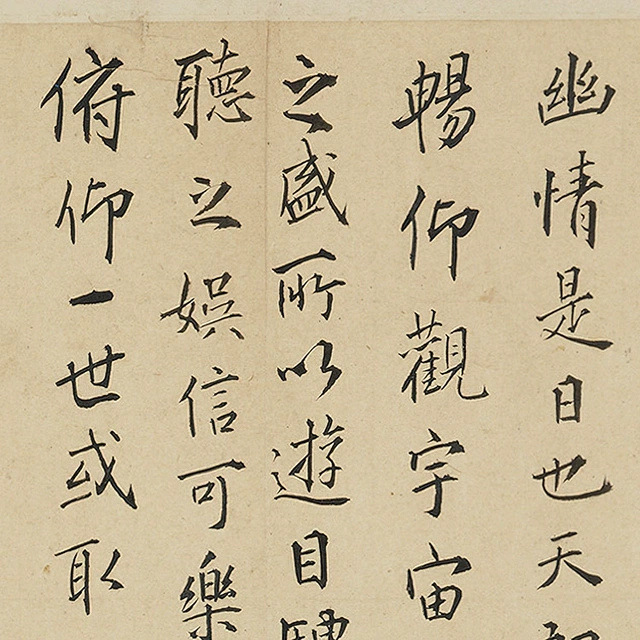 幽情是日也天
暢仰觀宇宙
之盛所以遊目騁
聽之娛信可樂
俯仰一世或取